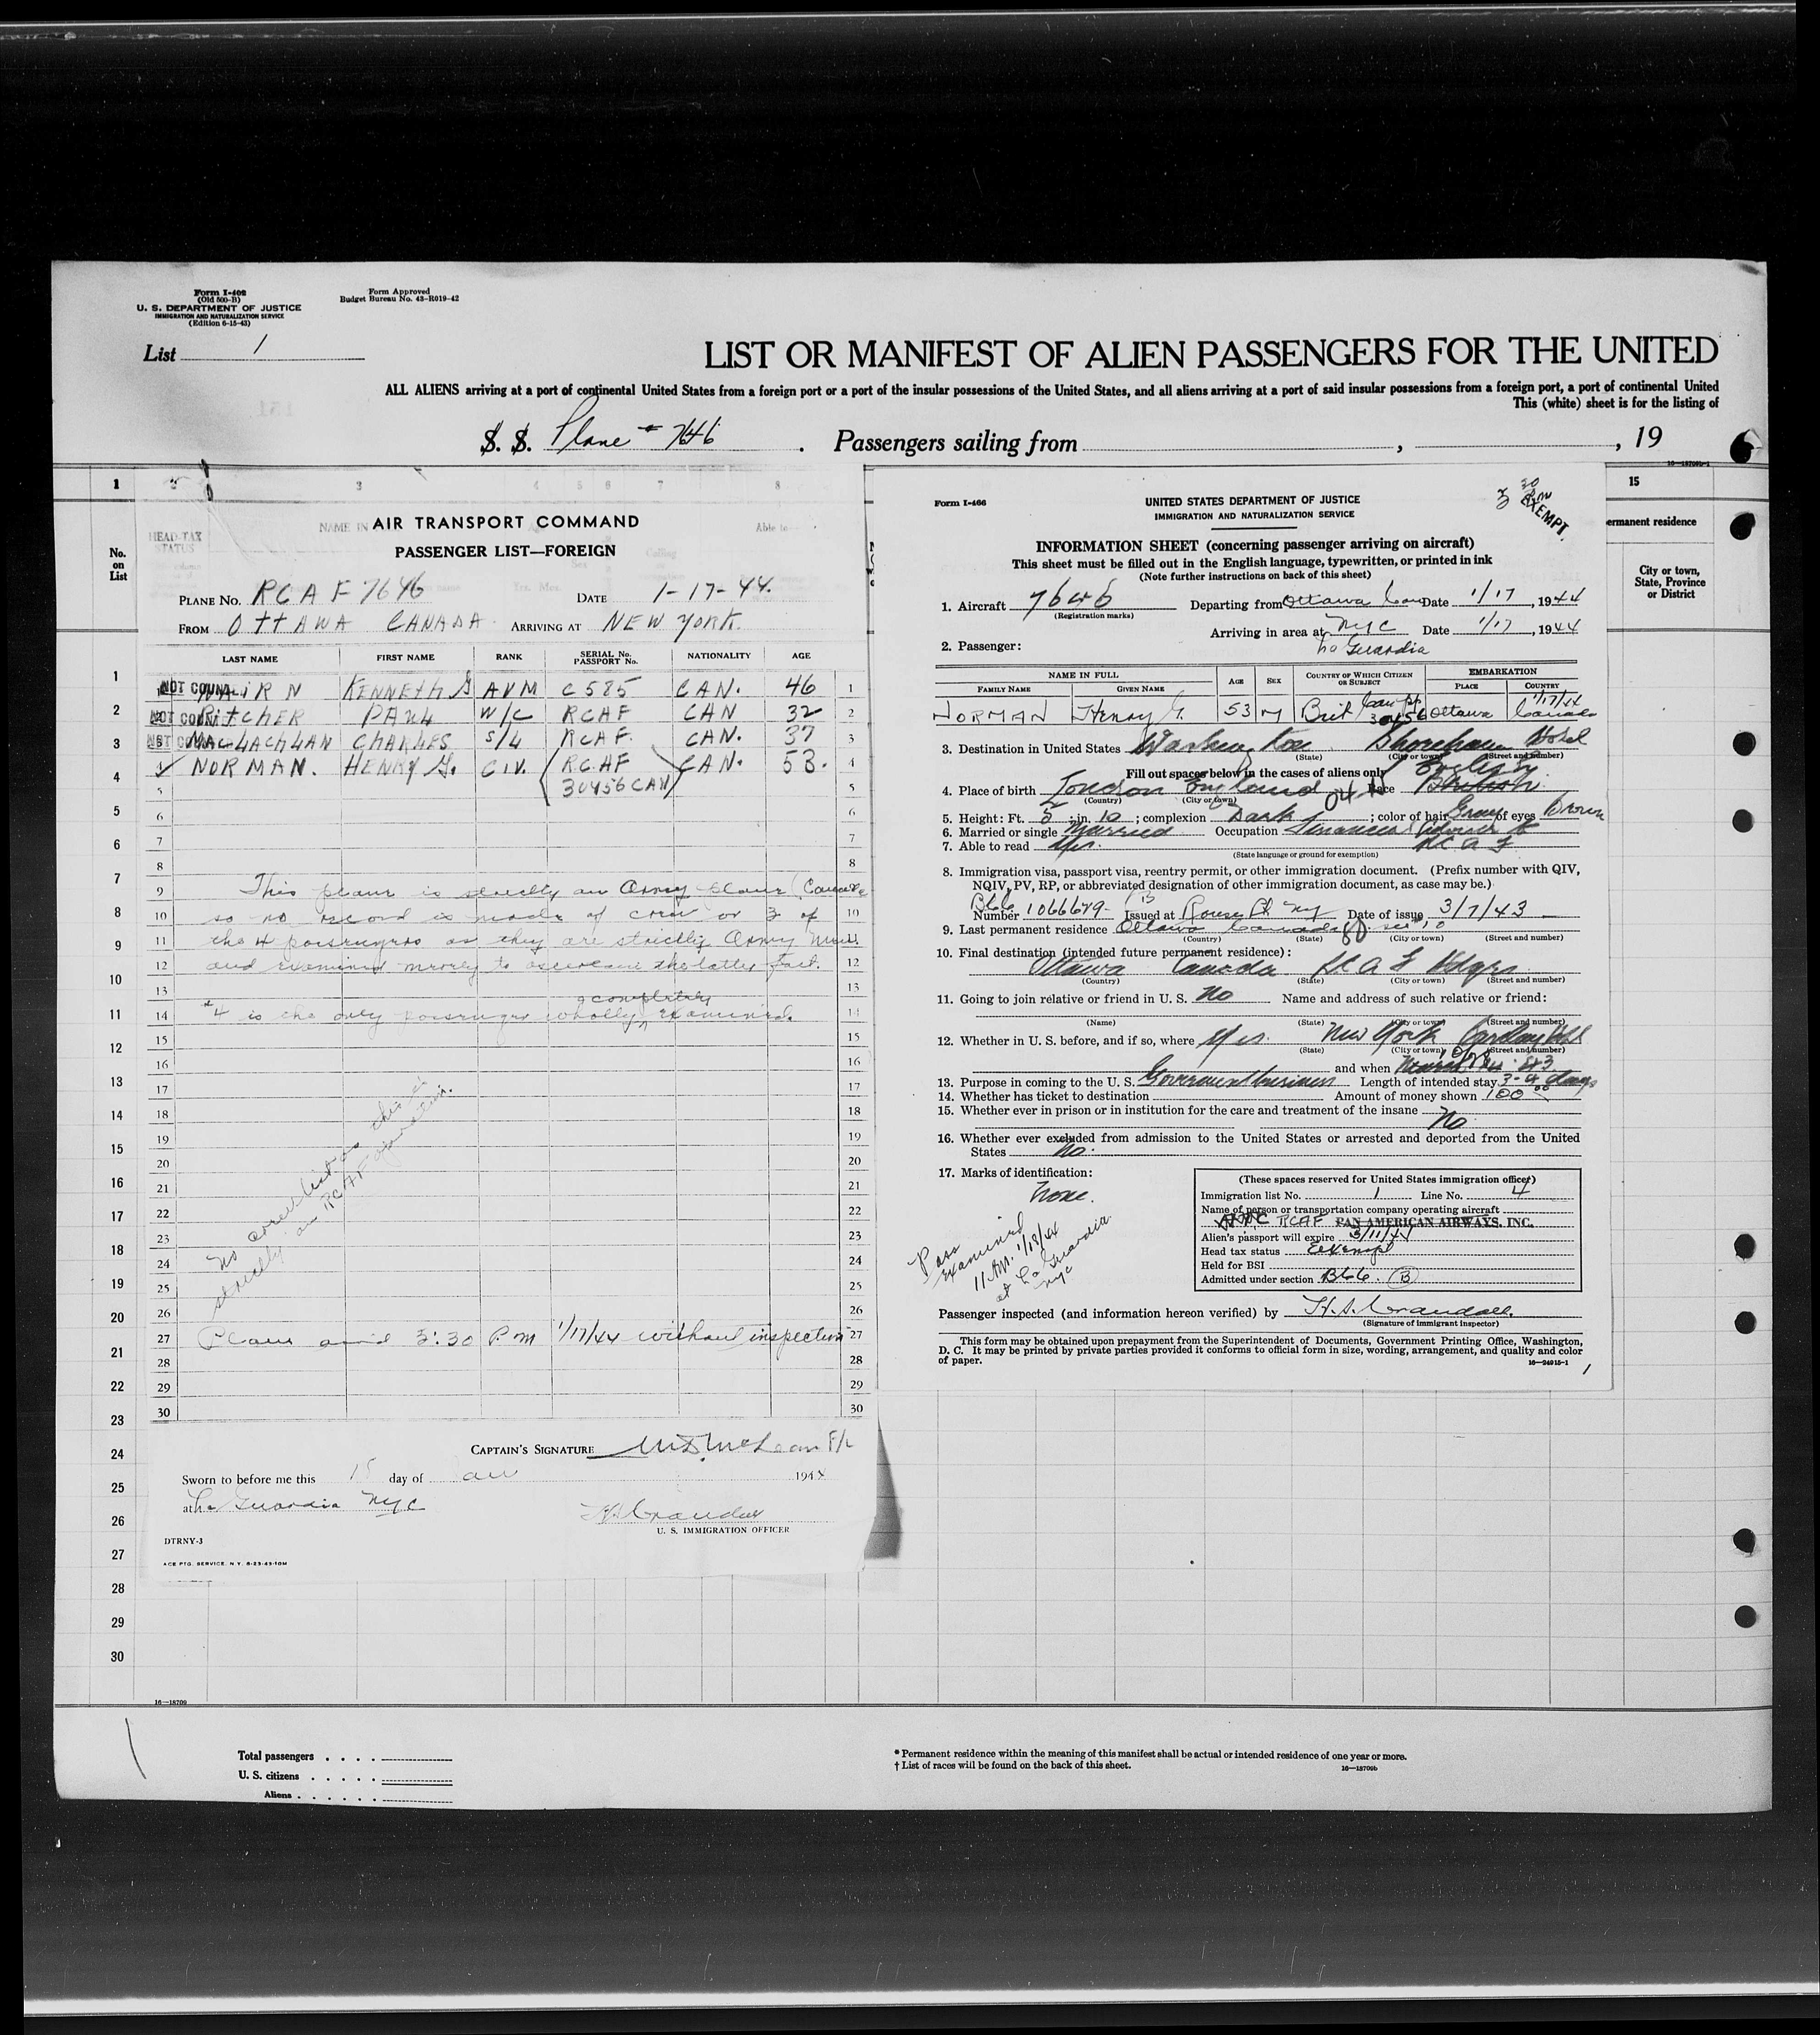 Form I-402
(Old 500-B)
U. S. DEPARTMENT OF JUSTICE
IMMIGRATION AND NATURALIZATION SERVICE
(Edition 6-15-43)
Form Approved
Budget Bureau No. 43-R019-42
List 1
LIST OR MANIFEST OF ALIEN PASSENGERS FOR THE UNITED
ALL ALIENS arriving at a port of continental United States from a foreign port or a port of the insular possessions of the United States, and all aliens arriving at a port of said insular possessions from a foreign port, a port of continental United
This (white) sheet is for the listing of
S. S. Plane # 7646 . Passengers sailing from , , 19
16—18709b-1
1 2 3 4 5 6 7 8
HEAD-TAX STATUS
NAME IN
Able to—
No. on List
AIR TRANSPORT COMMAND
PASSENGER LIST—FOREIGN
PLANE NO. RCAF 7646 DATE 1-17-44.
FROM OTTAWA CANADA. ARRIVING AT NEW YORK.
LAST NAME FIRST NAME RANK SERIAL No. PASSPORT No. NATIONALITY AGE
NOT COUN KENNETH G AVM C585 CAN. 46 1
NOT COUN PITCHER PAUL W/C RCAF CAN 32 2
NOT COUN MACLACHLAN CHARLES S/L RCAF. CAN. 37 3
NORMAN. HENRY G. CIV. RCAF CAN. 53. 4
30456 CAN 5
6
7
8
9 This plane is strictly an Army plane (Canada
10 so no record is made of crew or 3 of
11 the 4 passengers as they are strictly Army men
12 and examined merely to ascertain the latter fact.
13
completely
14 #4 is the only passenger wholly & examined.
15
16
17
18
19
20
21
22
23
24
25
26
No crew list as this is
strictly an RCAF
27 Plane arrived 5:30 P m 1/17/44 without inspection 27
28
29
30
CAPTAIN'S SIGNATURE McLean F/L
Sworn to before me this day of Jan 1944
at La Guardia NYC
H S Crandall
U. S. IMMIGRATION OFFICER
DTRNY-3
ACE PTG. SERVICE, N. Y. 6-23-43-10M
Form I-466
UNITED STATES DEPARTMENT OF JUSTICE
IMMIGRATION AND NATURALIZATION SERVICE
EXEMPT
INFORMATION SHEET (concerning passenger arriving on aircraft)
This sheet must be filled out in the English language, typewritten, or printed in ink
(Note further instructions on back of this sheet)
1. Aircraft 7646 Departing from Ottawa Can Date 1/17, 1944
(Registration marks)
Arriving in area at NYC Date 1/17, 1944
2. Passenger: La Guardia
NAME IN FULL AGE SEX COUNTRY OF WHICH CITIZEN OR SUBJECT EMBARKATION
FAMILY NAME GIVEN NAME PLACE COUNTRY
NORMAN Henry G. 53 M Brit Can 30456 Ottawa 1/17/44 Canada
3. Destination in United States Washington Shoreham Hotel
(State) (City or town) (Street and number)
Fill out spaces below in the cases of aliens only
4. Place of birth London England 04 Race British English
(Country) (City or town)
5. Height: Ft. 5 ; in. 10 ; complexion Dark ; color of hair Gray of eyes Brown
6. Married or single Married Occupation Financial Adviser to
7. Able to read Yes. RCAF
(State language or ground for exemption)
8. Immigration visa, passport visa, reentry permit, or other immigration document. (Prefix number with QIV,
NQIV, PV, RP, or abbreviated designation of other immigration document, as case may be.)
B66
Number 1066629 Issued at Rouses Pt NY Date of issue 3/7/43
9. Last permanent residence Ottawa Canada
(Country) (State) (City or town) (Street and number)
10. Final destination (intended future permanent residence):
Ottawa Canada RCAF Hdqrs
(Country) (State) (City or town) (Street and number)
11. Going to join relative or friend in U. S. No Name and address of such relative or friend:
(Name) (State) (City or town) (Street and number)
12. Whether in U. S. before, and if so, where Yes. New York
(State) (City or town) (Street and number)
and when
13. Purpose in coming to the U. S. Government business Length of intended stay 3-4 days
14. Whether has ticket to destination Amount of money shown 100
15. Whether ever in prison or in institution for the care and treatment of the insane No.
16. Whether ever excluded from admission to the United States or arrested and deported from the United
States No.
17. Marks of identification:
None.
Pass
Examined
11 AM. 1/18/44
at La Guardia
NYC
(These spaces reserved for United States immigration officer)
Immigration list No. 1 Line No. 4
Name of person or transportation company operating aircraft
RCAF PAN AMERICAN AIRWAYS, INC.
Alien's passport will expire 3/11/44
Head tax status Exempt
Held for BSI
Admitted under section B66. (B)
Passenger inspected (and information hereon verified) by H. S. Crandall.
(Signature of immigrant inspector)
This form may be obtained upon prepayment from the Superintendent of Documents, Government Printing Office, Washington,
D. C. It may be printed by private parties provided it conforms to official form in size, wording, arrangement, and quality and color
of paper.
16—24915-1
15
ermanent residence
City or town,
State, Province
or District
1
2
3
4
5
6
7
8
9
10
11
12
13
14
15
16
17
18
19
20
21
22
23
24
25
26
27
28
29
30
16—18709
Total passengers . . . .
U. S. citizens . . . . .
Aliens . . . . . .
* Permanent residence within the meaning of this manifest shall be actual or intended residence of one year or more.
† List of races will be found on the back of this sheet.
16—18709b